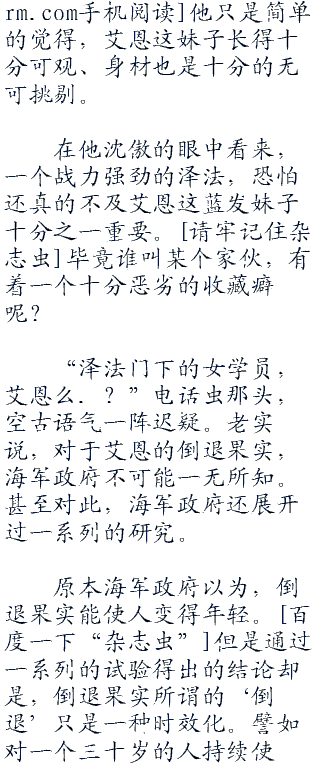 rm.com手机阅读]他只是简单
的觉得，艾恩这妹子长得十
分可观、身材也是十分的无
可挑剔。
在他沈傲的眼中看来，
一个战力强劲的泽法，恐怕
还真的不及艾恩这蓝发妹子
十分之一重要。[请牢记住杂
志虫]毕竟谁叫某个家伙，有
着一个十分恶劣的收藏癖
呢？
“泽法门下的女学员，
艾恩么．？”电话虫那头，
空古语气一阵迟疑。老实
说，对于艾恩的倒退果实，
海军政府不可能一无所知。
甚至对此，海军政府还展开
过一系列的研究。
原本海军政府以为，倒
退果实能使人变得年轻。[百
度一下“杂志虫”]但是通过
一系列的试验得出的结论却
是，倒退果实所谓的‘倒
退’只是一种时效化。譬如
对一个三十岁的人持续使